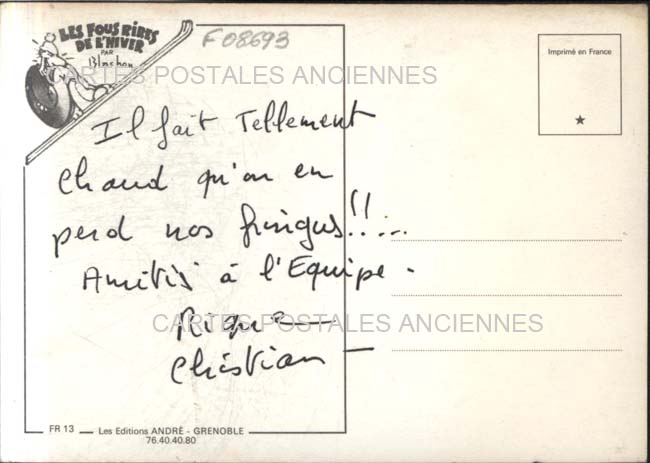 LES FOUS RIRES
DE L'HIVER
PAR
Blachon
F08693
CARTES POSTALES ANCIENNES
Imprimé en France
Il fait Tellement
Chaud qu'on en
perd nos fringues!!...
Amitiés à l'Equipe.
CARTES POSTALES ANCIENNES
Christian
FR 13
Les Editions ANDRÉ - GRENOBLE
76.40.40.80